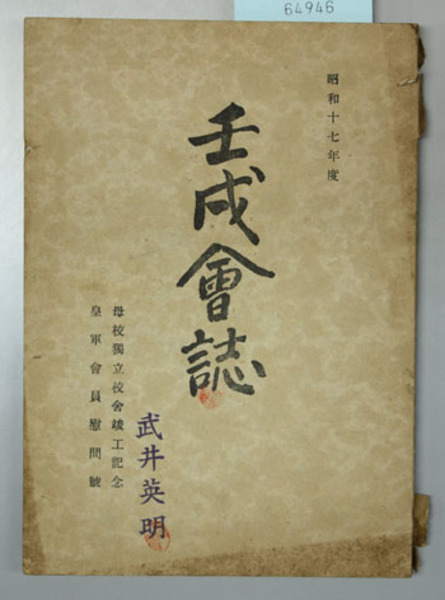 64946
昭和十七年度
壬戌會誌
母校獨立校舍竣工記念
皇軍會員慰問號
武井英明